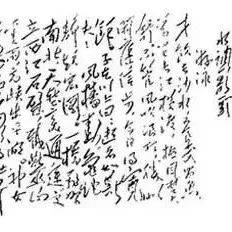 水调歌头
游泳
才饮长沙水又食武昌鱼
万里长江横渡极目楚天
舒不管风吹浪打胜似
闲庭信步今日得宽
馀子在川上曰逝者如斯
夫风樯动龟蛇
静起宏图一桥飞架
南北天堑变通途更
立西江石壁截断巫山
云雨高峡出平湖神女